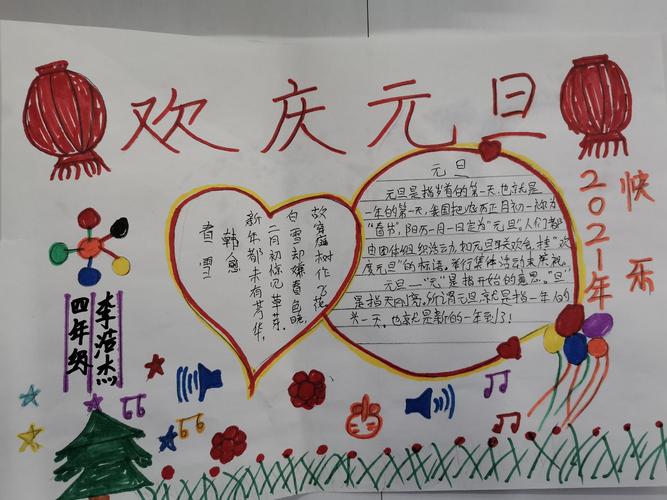 欢庆元旦
快乐
2021年
四年级
李浩杰
春雪
韩愈
新年都未有芳华,
二月初惊见草芽.
白雪却嫌春色晚,
故穿庭树作飞花
元旦
元旦是指岁首的第一天,也就是
一年的第一天,我国把农历正月初一称为
“春节”,阳历一月一日定为“元旦”。人们都
由团体组织活动,如元旦联欢会,挂“欢
度元旦”的标语。举行集体活动来庆祝。
元旦一“元”是指开始的意思。“旦”
是指天明。所谓元旦就是指一年的
头一天。也就是新的一年到了!